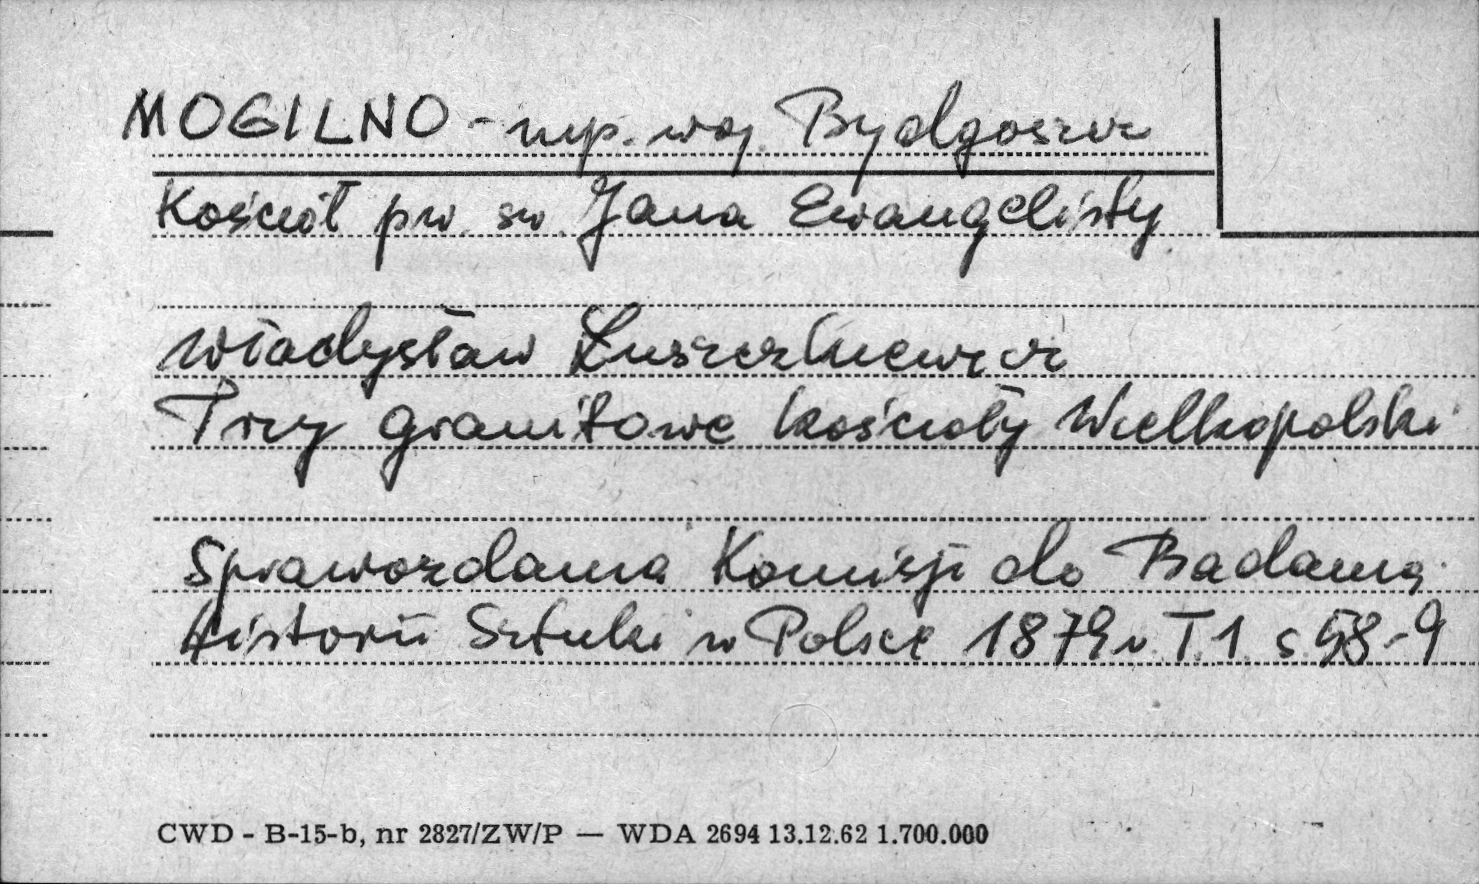 MOGILNO - mp. woj. Bydgoszcz
Kościół pw. św. Jana Ewangelisty
Władysław Łuszczkiewicz
Trzy granitowe kościoły Wielkopolski
Sprawozdania Komisji do Badania
Historii Sztuki w Polsce 1879 r. T.1 s 58-9
CWD - B-15-b, nr 2827/ZW/P — WDA 2694 13.12.62 1.700.000